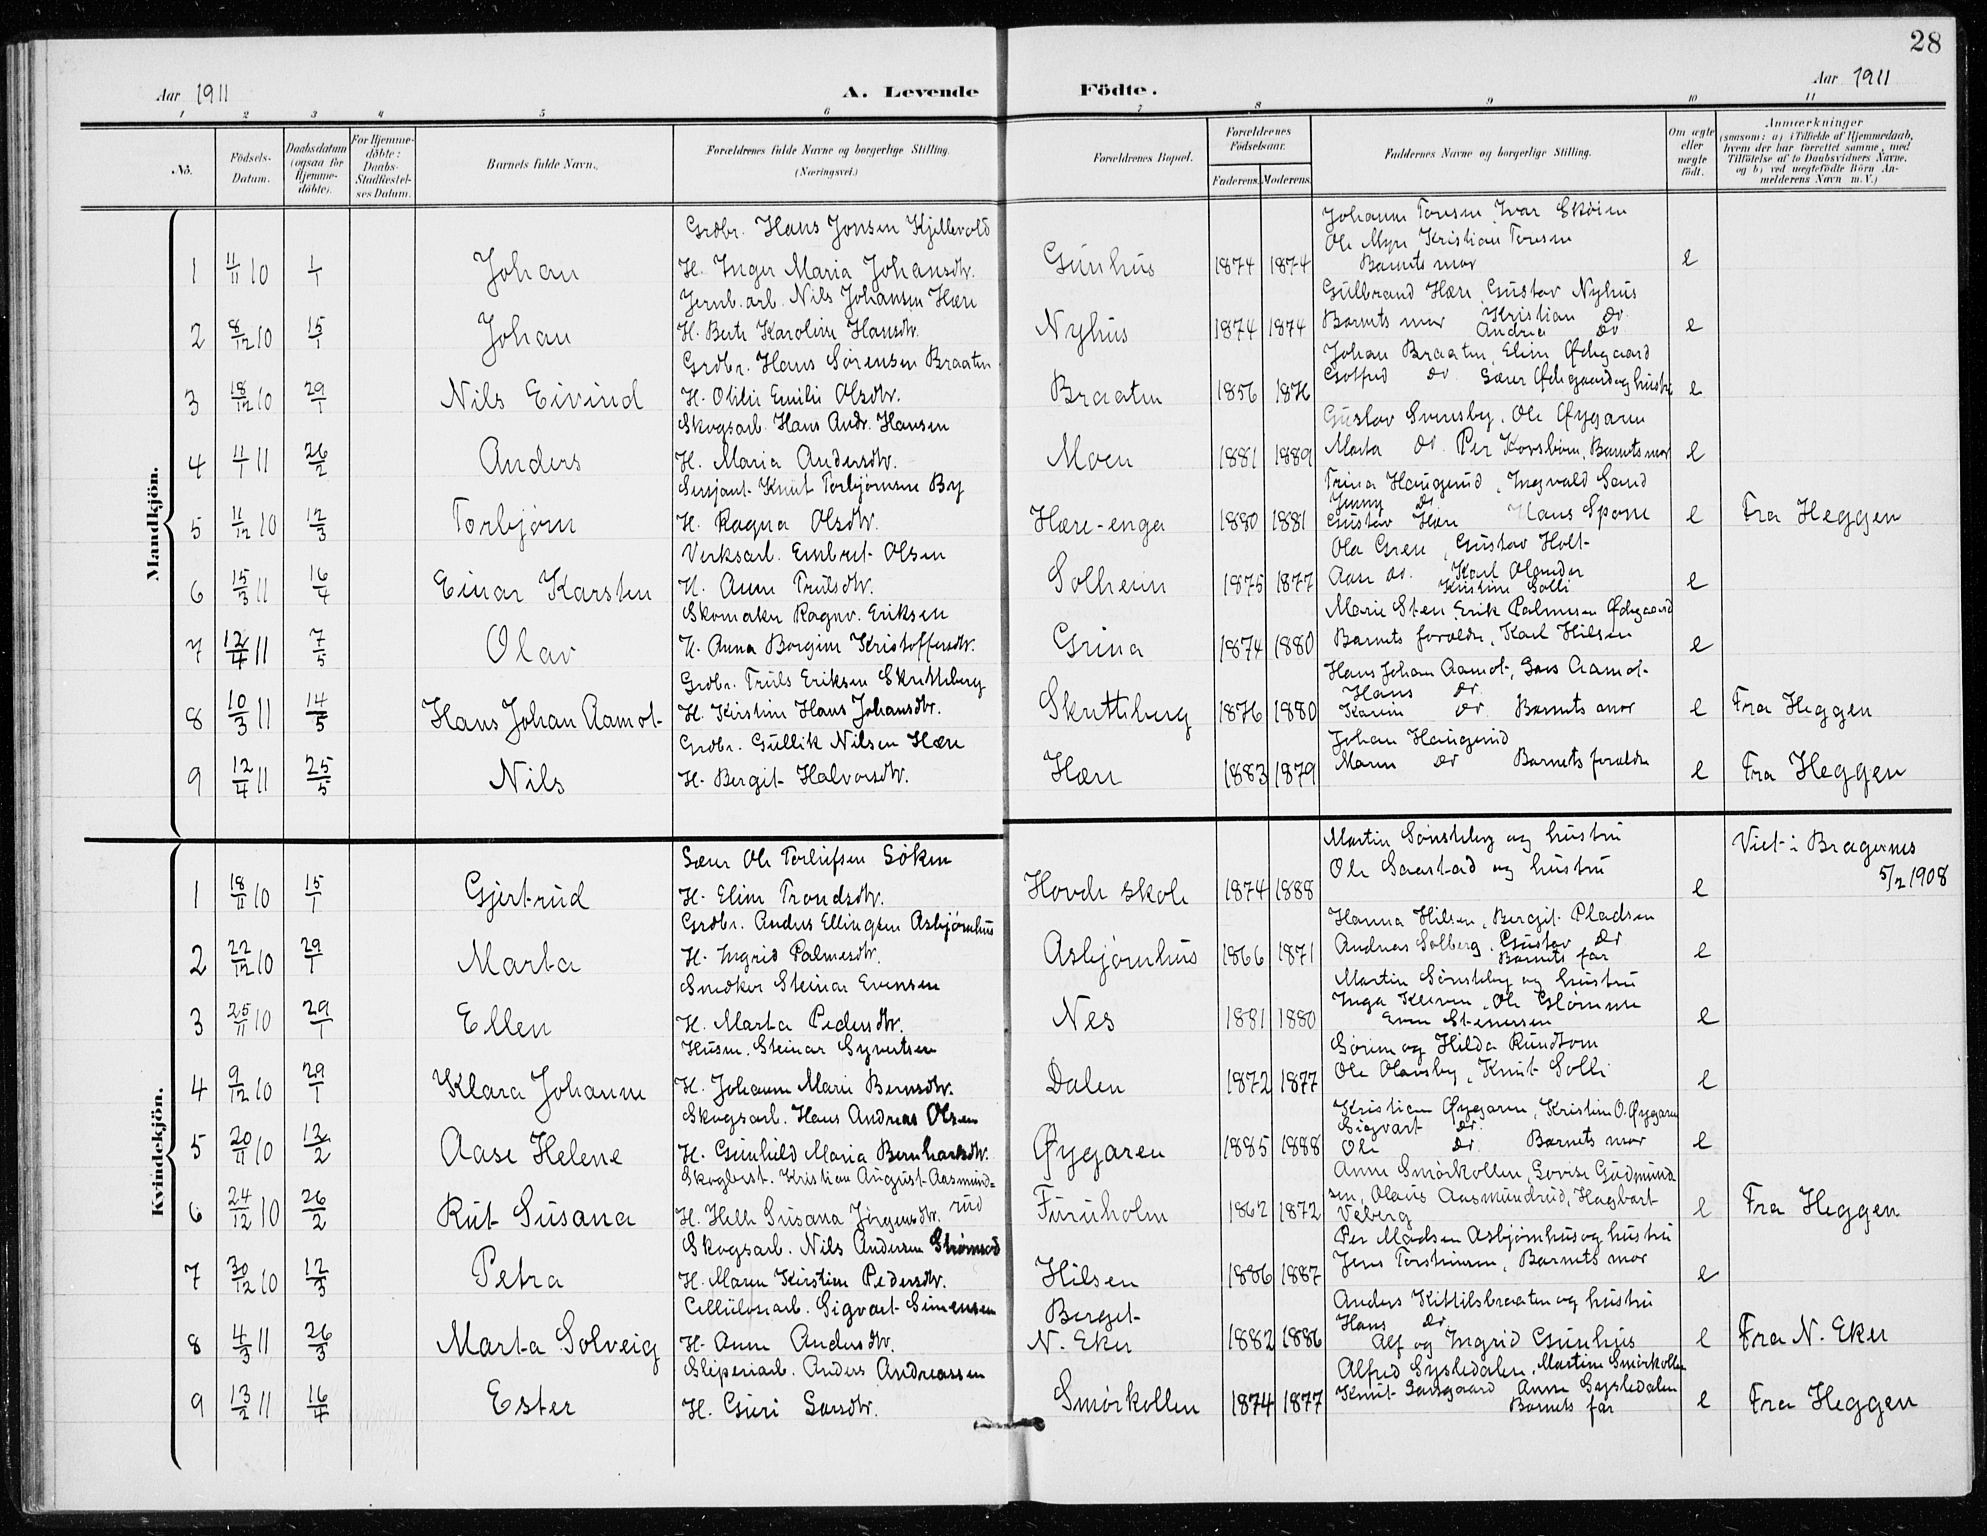 28
Aar 1911
A. Levende Födte.
Aar 1911
1 2 3 4 5 6 7 8 9 10 11
No.
Födsels-Datum.
Daabsdatum (ogsaa for Hjemme-döbte).
For Hjemme-döbte: Daabs-Stadfæstel-ses Datum.
Barnets fulde Navn.
Forældrenes fulde Navne og borgerlige Stilling.
(Næringsvei.)
Forældrenes Bopæl.
Forældrenes Födselsaar.
Faderens. Moderens.
Faddernes Navne og borgerlige Stilling.
Om ægte eller uægte födt.
Anmærkninger
(saasom: a) i Tilfælde af Hjemmedaab, hvem der har forrettet samme, med Tilföielse af to Daabsvidners Navne, og b) ved uegtefödte Börn An-melderens Navn m. V.)
Mandkjön.
Grdbr. Hans Jonsen Kjillevold
Johanne Toresen Ivar Skòien
Ole Myre Kristian Toresen
1 11/11 10 1/1 Johan H. Inger Maria Johansdtr. Gunhus 1874 1874 Barnets mor e
Jernb. arb. Nils Johansen Hære
Gulbrand Hære, Gustav Nyhus
2 8/12 10 15/1 Johan H. Berte Karoline Hansdtr. Nyhus 1874 1874 Barnets mor Kristian do e
Andrea do
Grdbr. Hans Sørensen Braaten
Johan Braaten, Eline Ødegaard
3 18/12 10 29/1 Nils Eivind H. Olilie Emilie Olsdtr. Braaten 1856 1876 Gotfred do Lærer Ødegaard og hustru e
Skogsarb. Hans Andr. Hansen
Gustav Svensby, Ole Øygaren
4 4/1 11 26/2 Anders H. Maria Andersdtr. Moen 1881 1889 Marta do. Per Korsbøen, Barnets mor e
Sersjant Knut Torbjørnsen By
Trina Haugerud, Ingvald Sand
Jenny do
5 11/12 10 12/3 Torbjørn H. Ragna Olsdtr. Hære-enga 1880 1881 Gustav Hære Hans Spone e Fra Heggen
Verksarb. Embret Olsen
Ola Gren, Gustav Holt
6 15/3 11 16/4 Einar Karsten H. Anne Trulsdtr. Solheim 1875 1877 Aase do. Karl Olender e
Kristine Solli
Skomaker Ragnv. Eriksen
Marie Sten Erik Palmesen Ødegaard
7 12/4 11 7/5 Olav H. Anna Borgine Kristoffersdtr. Grina 1874 1880 Barnets foreldre, Karl Hilsen e
Grdbr. Truls Eriksen Skuttsberg
Hans Johan Aamot, Lars Aamot
Hans do
8 10/3 11 14/5 Hans Johan Aamot H. Kirstine Hans Johansdtr. Skuttsberg 1876 1880 Karin do Barnets mor e Fra Heggen
Grdbr. Gullik Nilsen Hære
Johan Haugerud
9 12/4 11 25/5 Nils H. Bergit Halvorsdtr. Hære 1883 1879 Maren do Barnets foreldre e Fra Heggen
Kvindekjön.
Lærer Ole Torleifsen Søken
Martin Sønsteby og hustru
Viet i Bragernes
Ole Saastad og hustru
5/2 1908
1 18/11 10 15/1 Gjertrud H. Eline Trondsdtr. Hovde skole 1874 1888 e
Grdbr. Anders Ellingsen Asbjørnhus
Hanna Hilsen, Bergit Pladsen
2 22/12 10 29/1 Marta H. Ingrid Palmesdtr. Asbjørnhus 1866 1871 Andreas Solberg, Gustav do e
Barnets far
Snedker Steinar Evensen
Martin Sønsteby og hustru
3 25/11 10 29/1 Ellen H. Marta Pedersdtr. Nes 1881 1880 Inga Kleven, Ole Glømme e
Even Stenersen
Husm. Steinar Syvertsen
Søren og Hilda Rundtom
4 9/12 10 29/1 Klara Johanne H. Johanne Marie Berntsdtr. Dalen 1872 1877 Ole Olavsby, Knut Solli e
Skogsarb. Hans Andreas Olsen
Kristian Øygaren, Kristine O. Øygaren
Sigvart do
5 20/11 10 12/2 Aase Helene H. Gunhild Maria Bernhardsdtr. Øygaren 1885 1888 Ole do Barnets mor e
Skogbest. Kristian August Aasmund-rud
Anne Smørkollen, Lovise Gudmund-
6 24/12 10 26/2 Rut Susana H. Helle Susana Jørgensdtr. Furuholm 1862 1872 sen, Olaus Aasmundrud, Hagbart e Fra Heggen
Veberg
Skogsarb. Nils Andersen Strømsod
Per Madsen Asbjørnhus og hustru
7 30/12 10 12/3 Petra H. Maren Kirstine Pedersdtr. Hilsen 1886 1887 Jens Torstensen, Barnets mor e
Cellulosearb. Sigvart Simensen
Berget
Anders Kittilsbraaten og hustru
Hans do
8 4/3 11 26/3 Marta Solveig H. Anne Andersdtr. N. Eker 1882 1886 Alf og Ingrid Gunhus e Fra N. Eker
Sliperiarb. Anders Andreassen
Alfred Sysledalen, Martine Smørkollen
9 13/2 11 16/4 Ester H. Guri Larsdtr. Smørkollen 1874 1877 Knut Larsgaard Anne Sysledalen e Fra Heggen
Barnets far